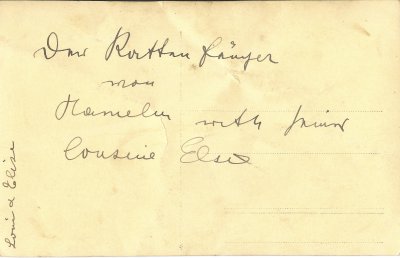 Der Rattenfänger
von
Hameln with seiner
Cousine Else
Loni & Elise